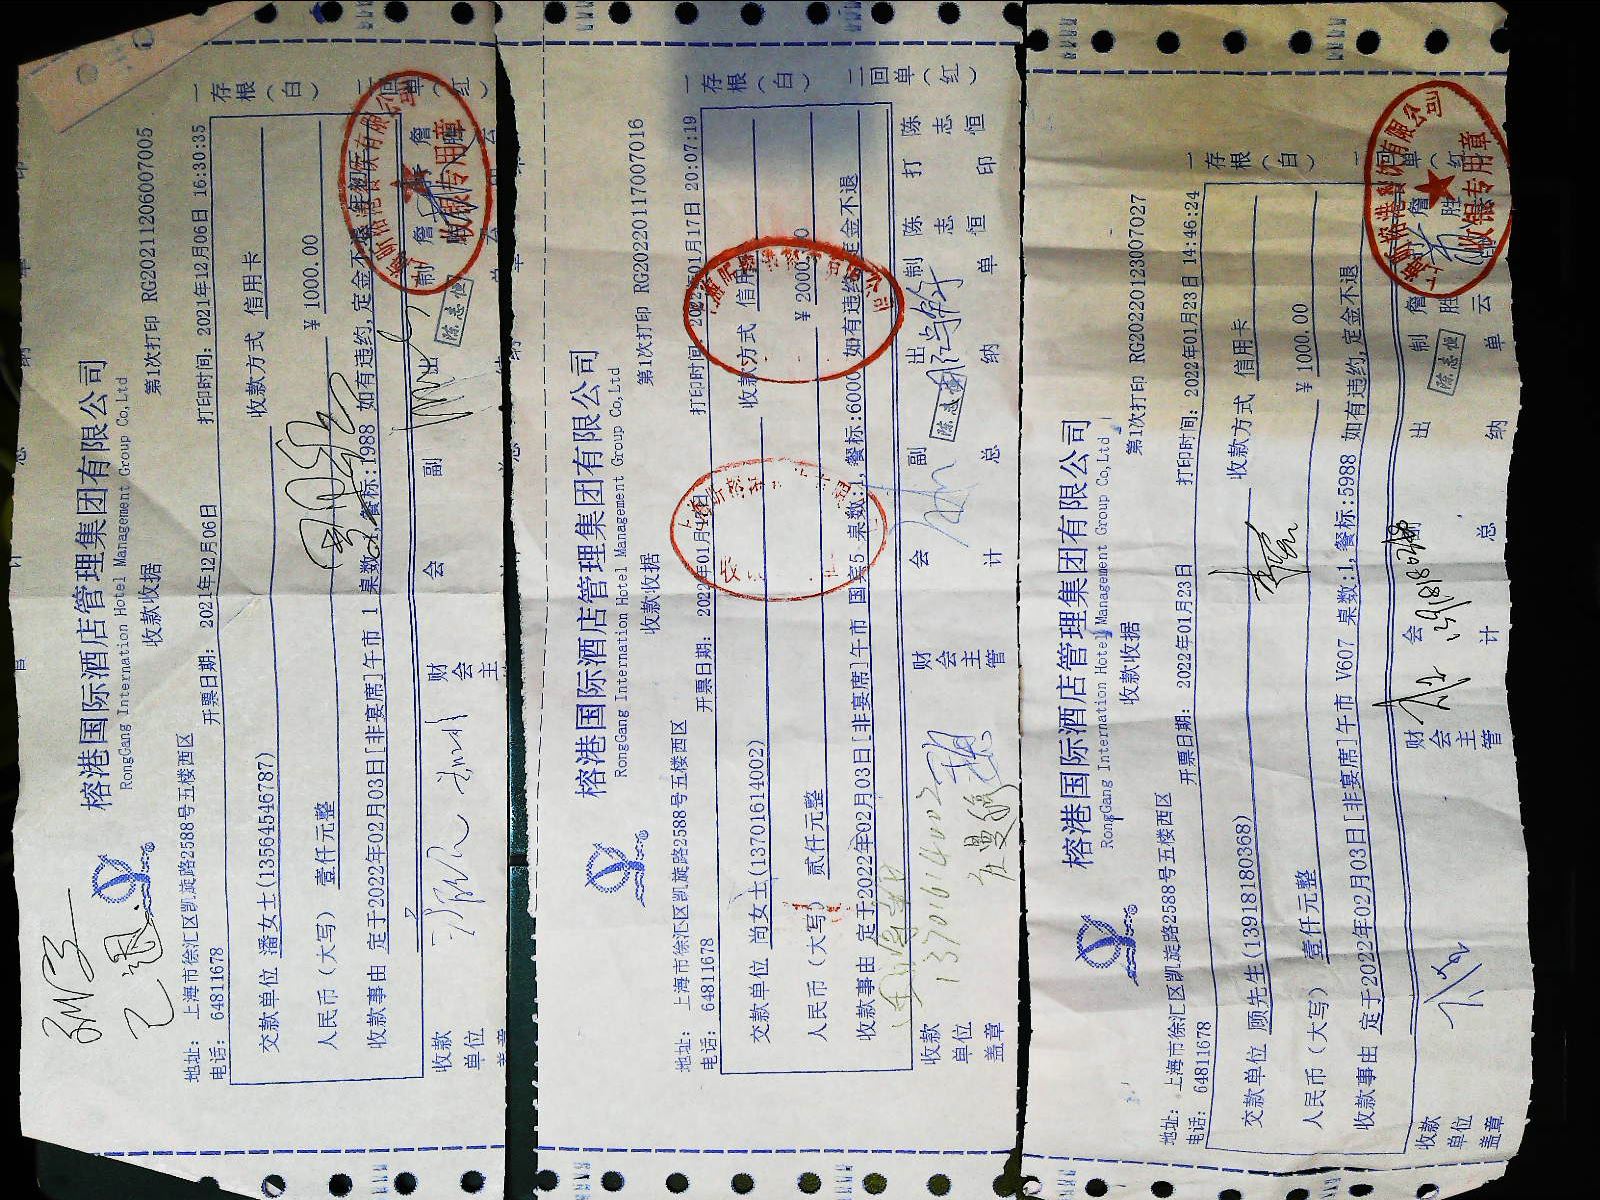 榕港国际酒店管理集团有限公司
RongGang International Hotel Management Group Co,Ltd
收款收据
第1次打印 RG20211206007005
地址: 上海市徐汇区凯旋路2588号五楼西区
电话: 64811678
开票日期: 2021年12月06日
打印时间: 2021年12月06日 16:30:35
交款单位 潘女士(13564546787)
收款方式 信用卡
人民币(大写) 壹仟元整
¥ 1000.00
收款事由 定于2022年02月03日[非宴席]午市 1 桌数:1,餐标:1988 如有违约,定金不退
一存根(白)
二回单(红)
收款单位
财会主
会
副
出
制
詹
詹
收银专用章
陈志恒
榕港国际酒店管理集团有限公司
RongGang International Hotel Management Group Co,Ltd
收款收据
第1次打印 RG20220117007016
地址: 上海市徐汇区凯旋路2588号五楼西区
电话: 64811678
开票日期: 2022年01月
打印时间: 2022年01月17日 20:07:19
交款单位 尚女士(13701614002)
收款方式 信用
人民币(大写) 贰仟元整
¥ 2000
收款事由 定于2022年02月03日[非宴席]午市 国宾5 桌数:1,餐标:6000 如有违约,定金不退
一存根(白)
二回单(红)
收款单位盖章
财会主管
会计
副总
出纳
制单
陈志恒
打印
陈志恒
陈志恒
13701614002
榕港国际酒店管理集团有限公司
RongGang International Hotel Management Group Co,Ltd
收款收据
第1次打印 RG20220123007027
地址: 上海市徐汇区凯旋路2588号五楼西区
电话: 64811678
开票日期: 2022年01月23日
打印时间: 2022年01月23日 14:46:24
交款单位 顾先生(13918180368)
收款方式 信用卡
人民币(大写) 壹仟元整
¥ 1000.00
收款事由 定于2022年02月03日[非宴席]午市 V607 桌数:1,餐标:5988 如有违约,定金不退
一存根(白)
收款单位盖章
财会主管
会计
总
出纳
制单
詹胜云
詹胜
收银专用章
陈志恒